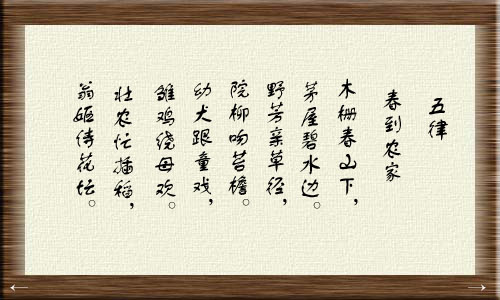 五律
春到农家
木栅春山下，
茅屋碧水边。
野芳亲草径，
院柳吻苔檐。
幼犬跟童戏，
雏鸡绕母欢。
壮农忙插稻，
翁妪侍花坛。